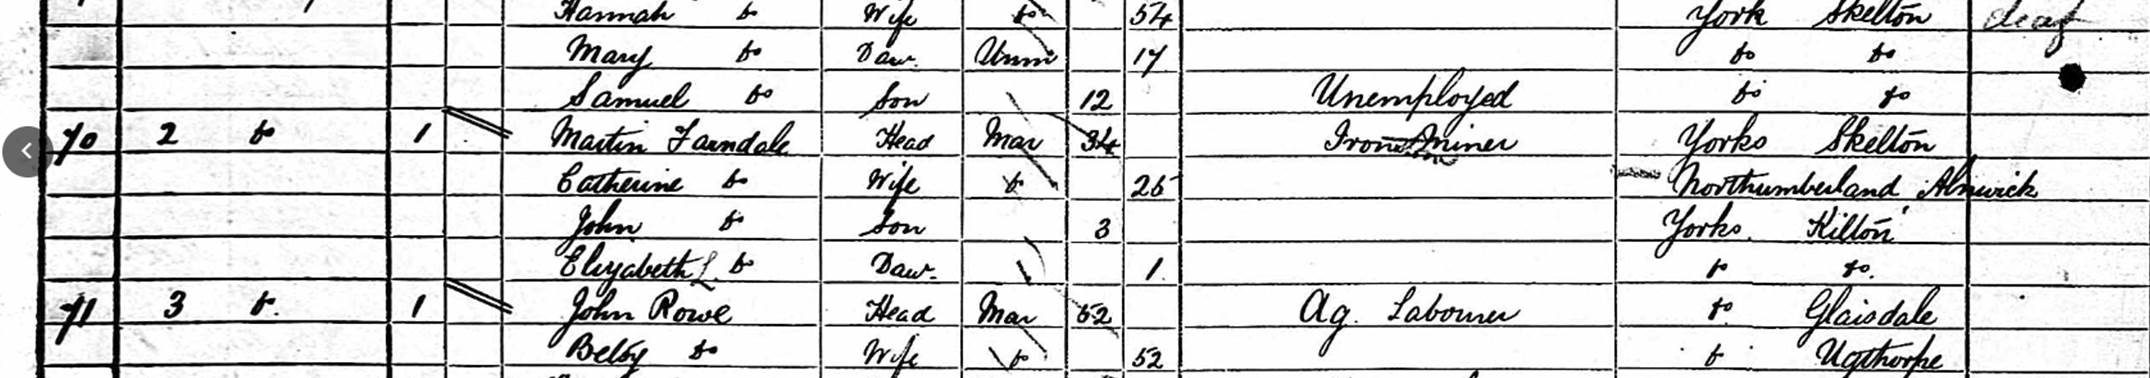 Hannah do Wife do 54 York Skelton deaf
Mary do Daur. Unm 17 do do
Samuel do Son 12 Unemployed do do
70 2 do 1 Martin Farndale Head Mar 34 Iron Miner Yorks Skelton
Catherine do Wife do 26 Northumberland Alnwick
John do Son 3 Yorks. Kilton
Elizabeth L do Daur. 1 do do.
71 3 do. 1 John Rowe Head Mar 52 Ag. Labourer do Glaisdale
Betsy do Wife do 52 do Ugthorpe